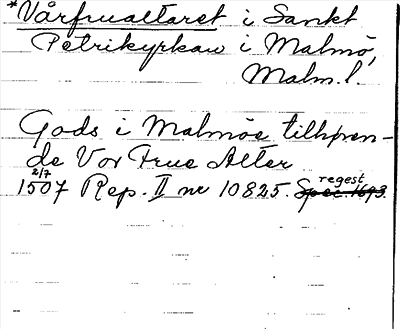 *Vårfrualtaret i Sankt
Petrikyrkan i Malmö,
Malm. l.
Gods i Malmöe tilhøren-
de Vor Frue Alter
2/7
1507 Rep. II nr 10825. Spec. 1693. regest